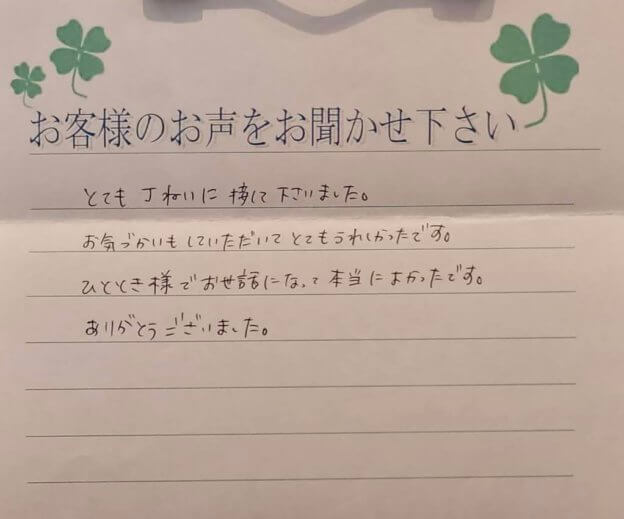 お客様のお声をお聞かせ下さい
とても丁ねいに接して下さいました。
お気づかいもしていただいてとてもうれしかったです。
ひととき様でお世話になって本当によかったです。
ありがとうございました。